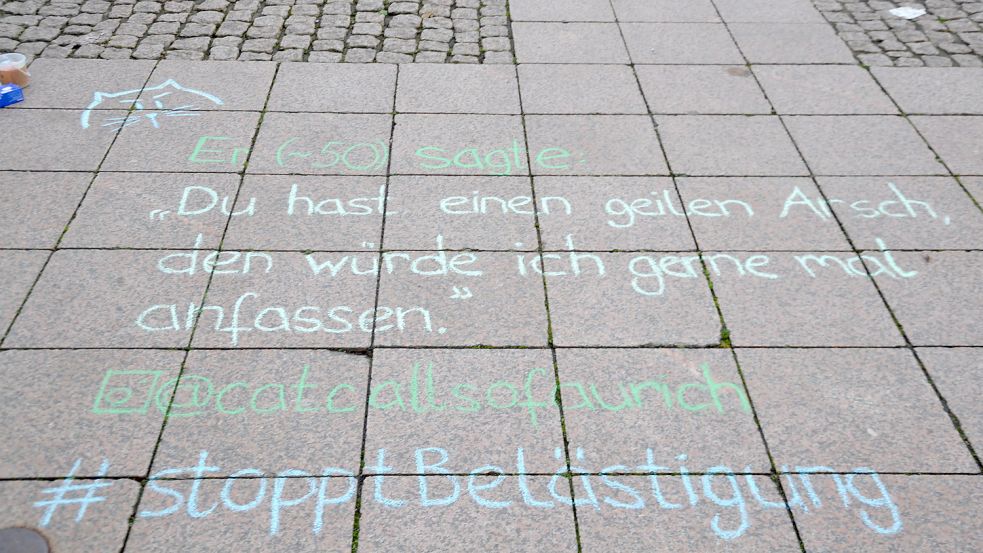 Er (~50) sagte:
„Du hast einen geilen Arsch,
den würde ich gerne mal
anfassen.“
@catcallsofaurich
#stopptBelästigung